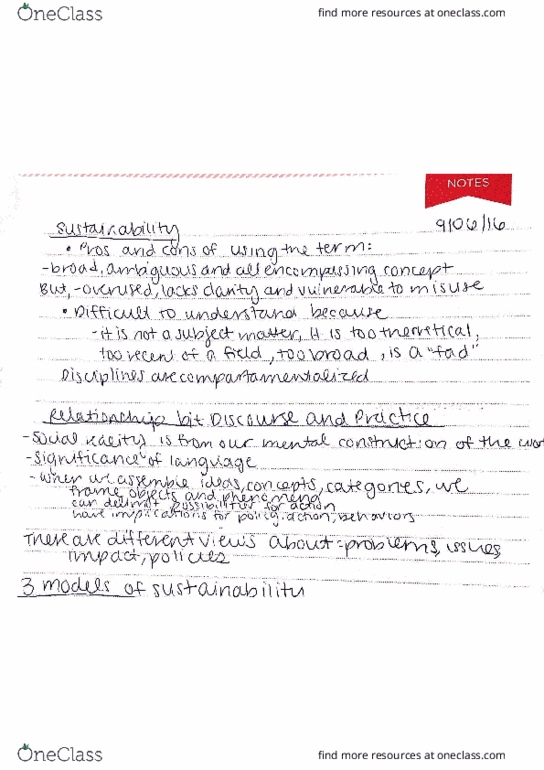 OneClass
find more resources at oneclass.com
NOTES
Sustainability
9/06/16
• Pros and cons of using the term:
-broad, ambiguous and all encompassing concept
But, -overused, lacks clarity and vulnerable to misuse
• Difficult to understand because
-it is not a subject matter, it is too theretical,
too recent of a field, too broad, is a "fad"
Disciplines are compartamentalized
Relationship b/t Discourse and Practice
-Social reality is from our mental construction of the wor
-Significance of language
-When we assemble ideas, concepts, categories, we
frame objects and phenomena
can delimit possibilities for action
have implications for policy, action, behaviors
There are different views about =problems, issues,
impact, policies
3 models of sustainability
OneClass
find more resources at oneclass.com